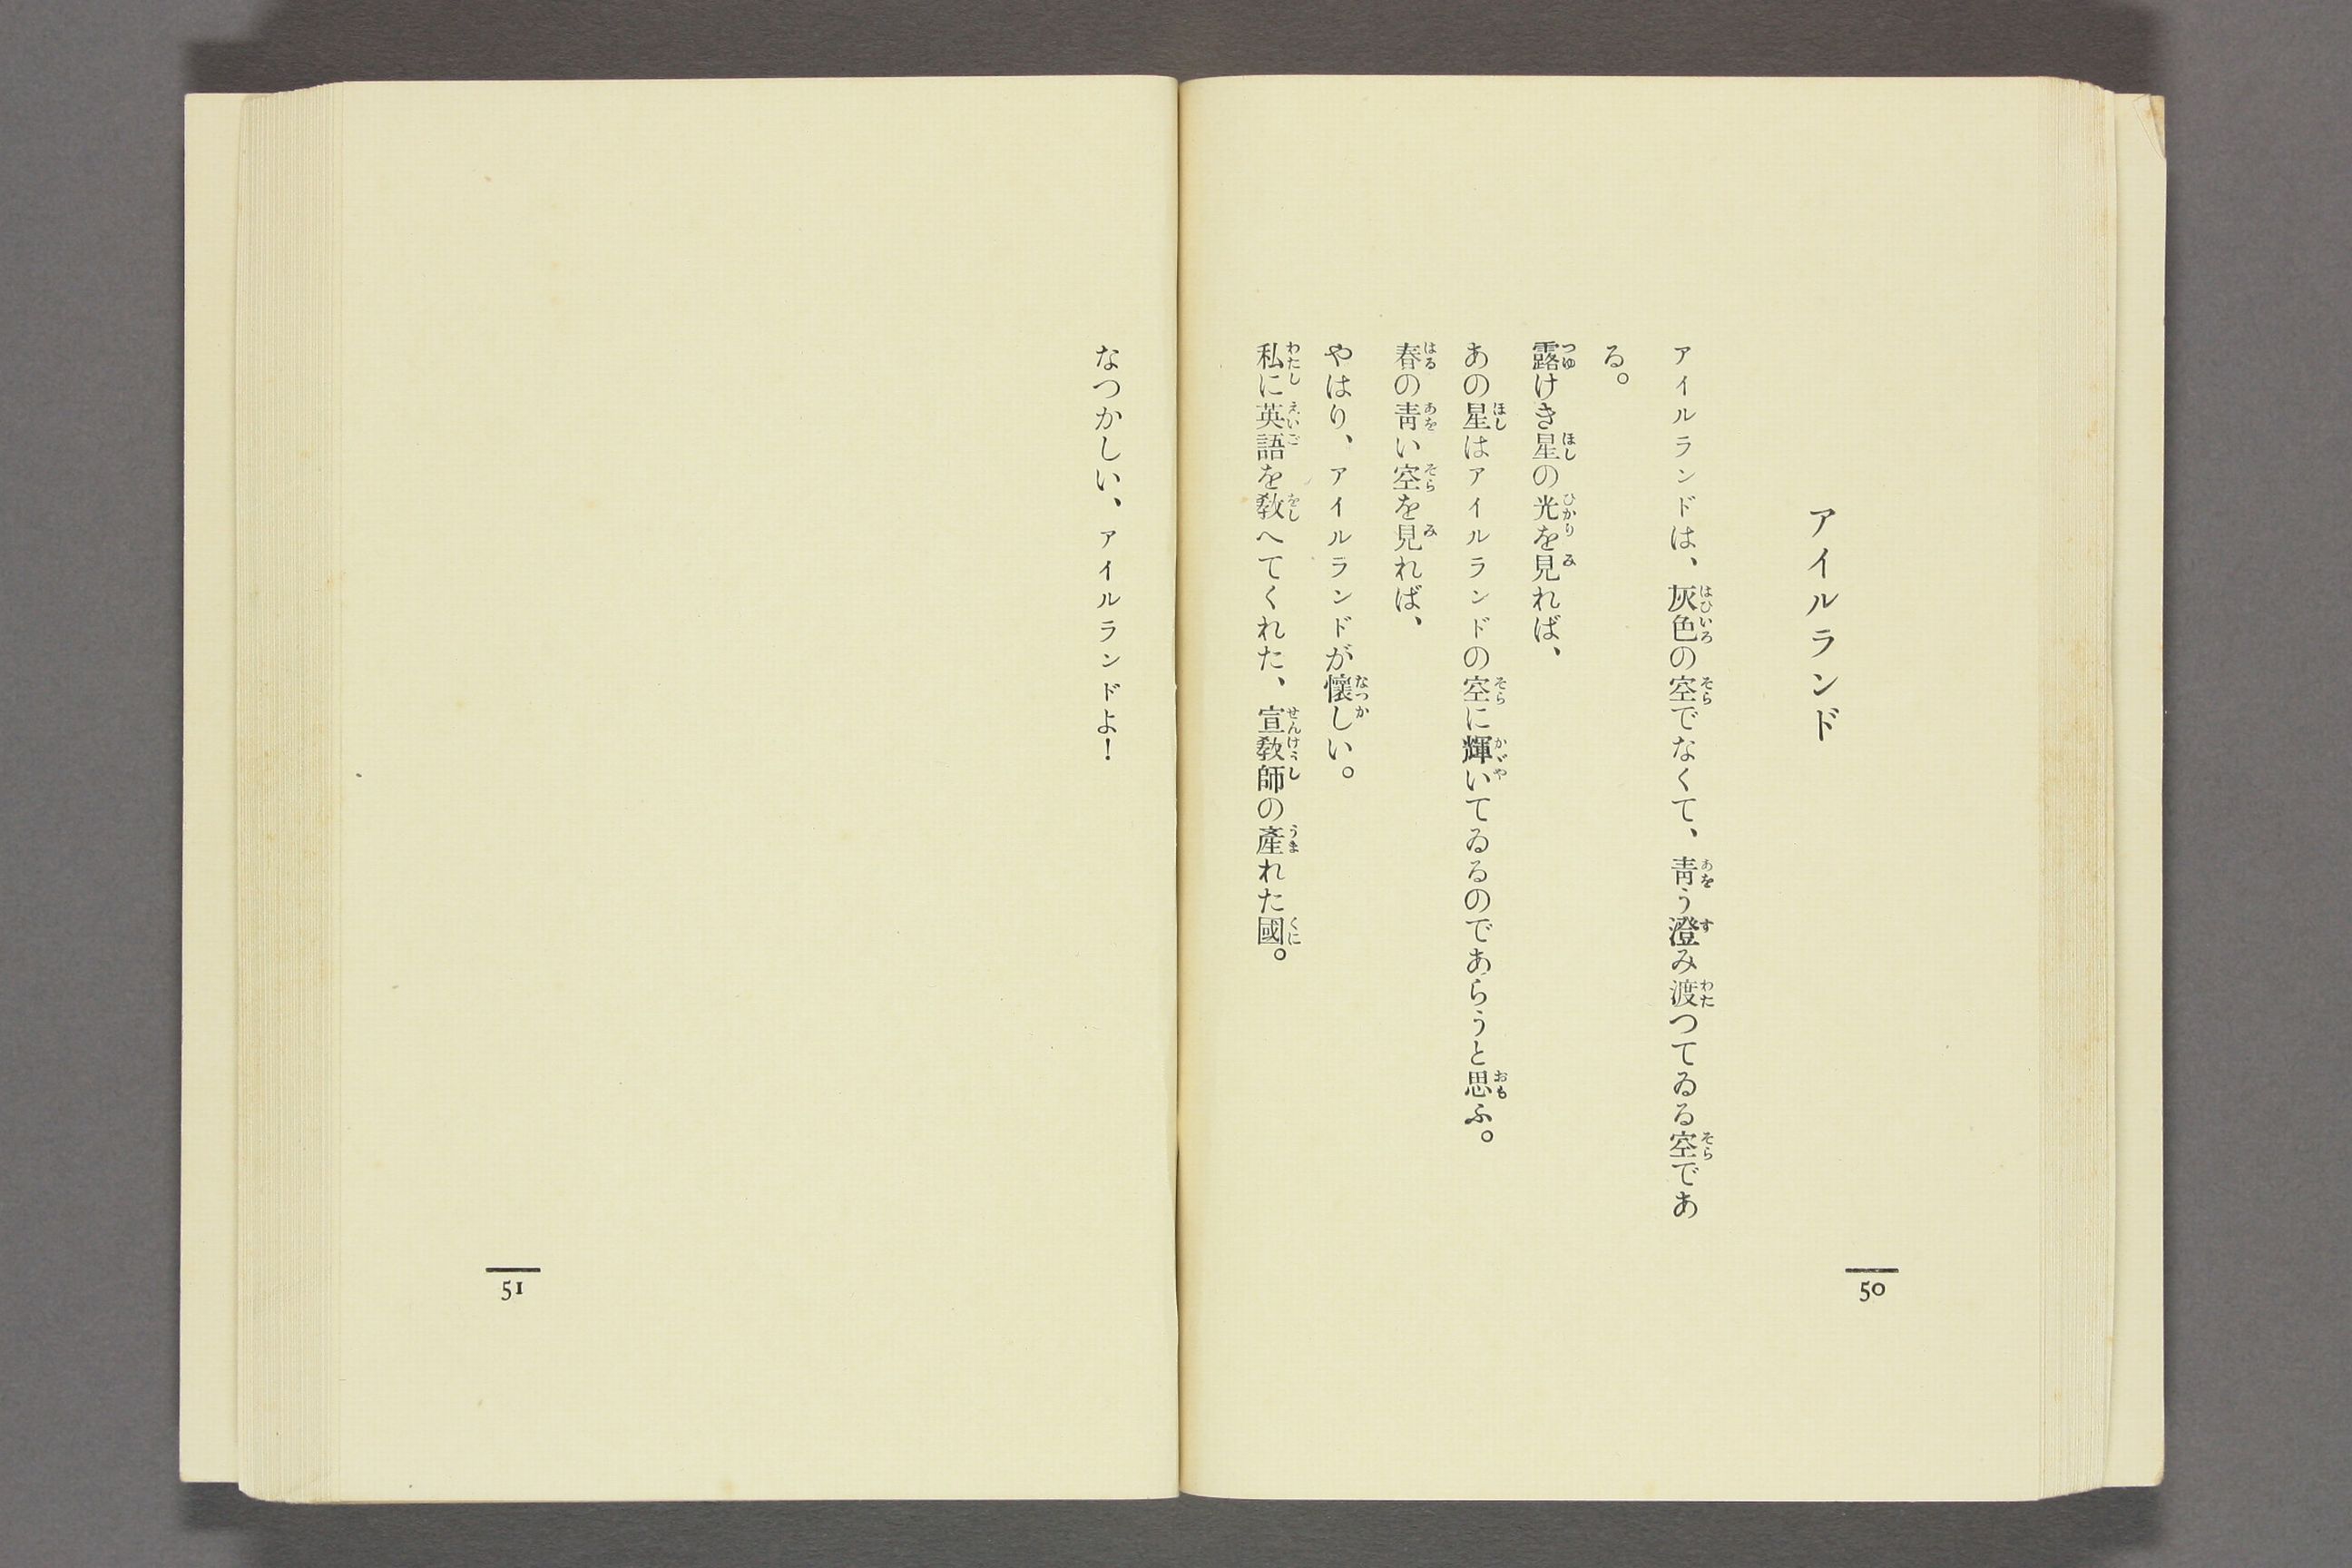 アイルランド
アイルランドは、灰色の空でなくて、靑う澄み渡つてゐる空であ
る。
露けき星の光を見れば、
あの星はアイルランドの空に輝いてゐるのであらうと思ふ。
春の靑い空を見れば、
やはり、アイルランドが懷しい。
私に英語を敎へてくれた、宣敎師の產れた國。
50
なつかしい、アイルランドよ!
51